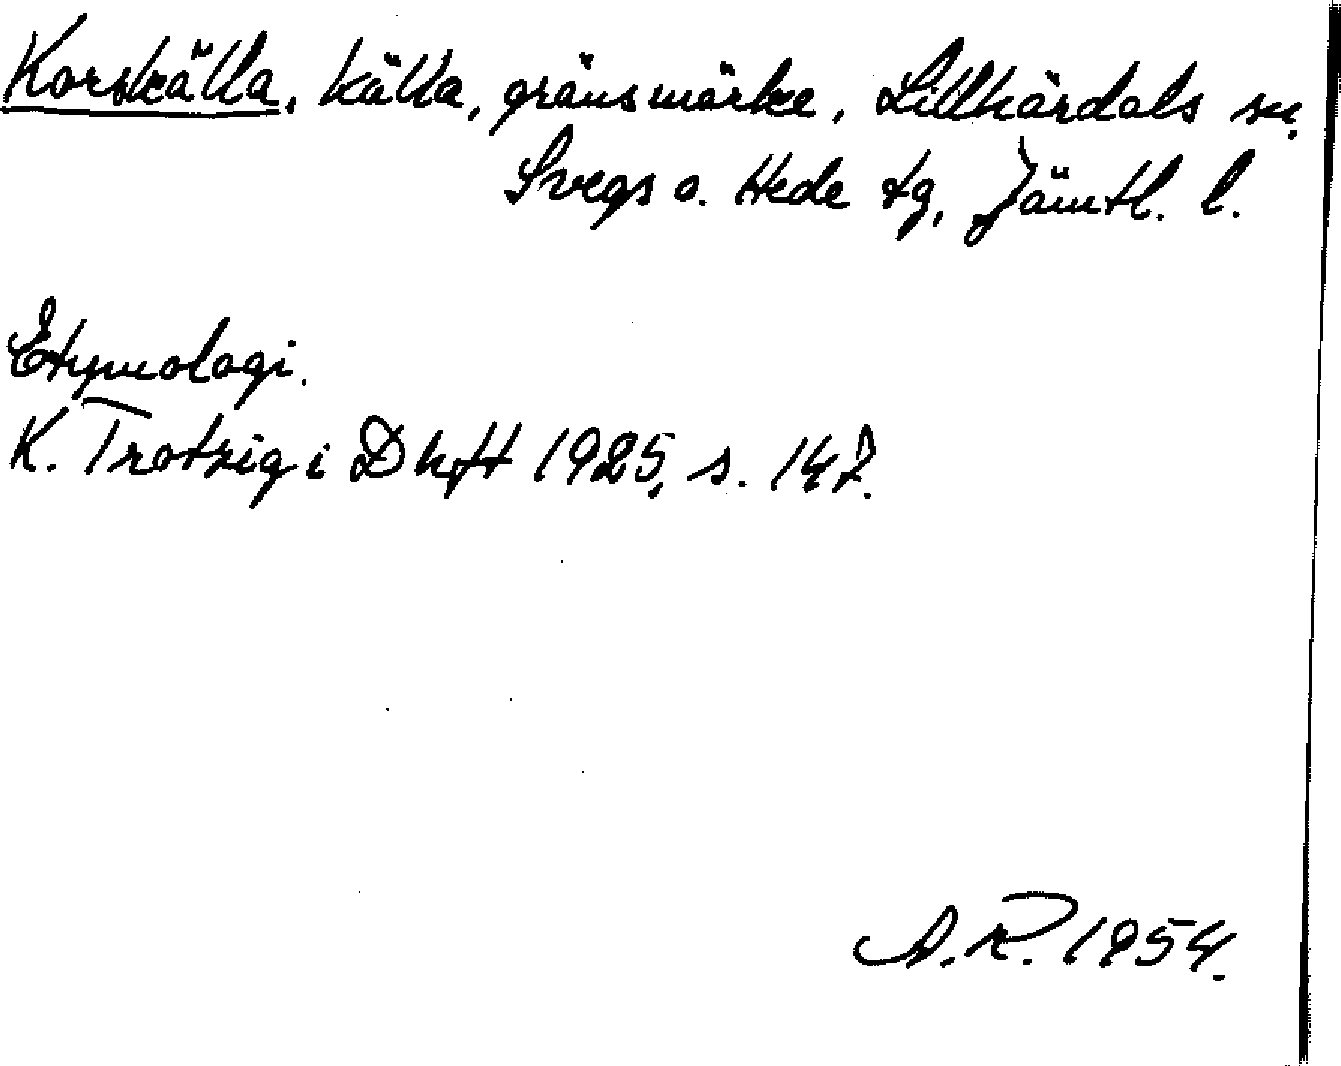 Korskälla, källa, gränsmärke, Lillhärdals sn.
Svegs o. Hede tg, Jämtl. l.
Etymologi.
K. Trotzig i Dhft 1925, s. 147.
A.R. 1954.